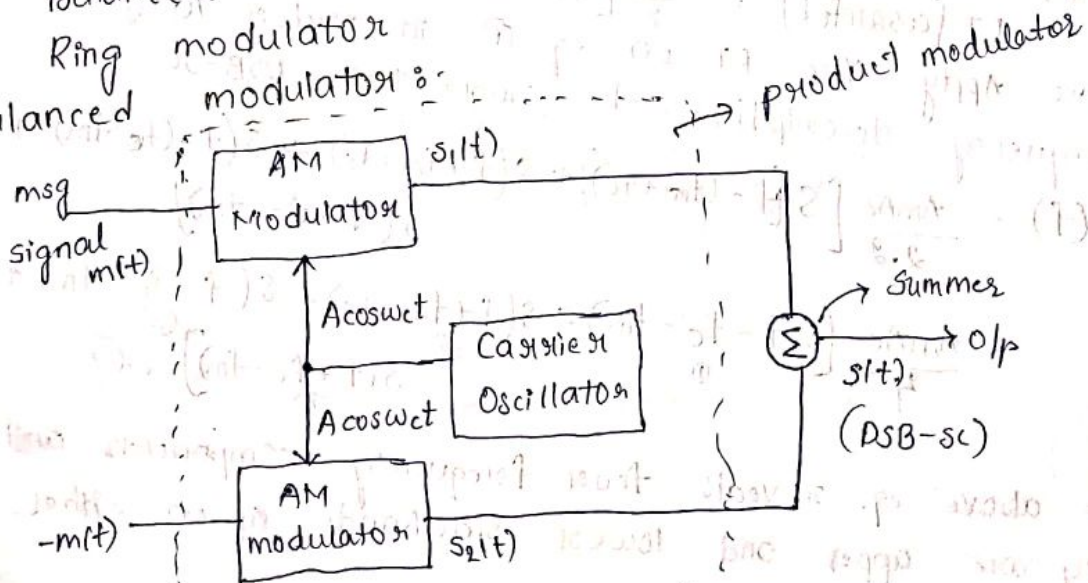 Ring modulator
modulator :-
product modulator
msg
signal
m(t)
AM
Modulator
s₁(t)
Acoswct
Carrier
Oscillator
Acoswct
Summer
Σ
o/p
s(t).
(DSB-SC)
-m(t)
AM
modulator
s₂(t)